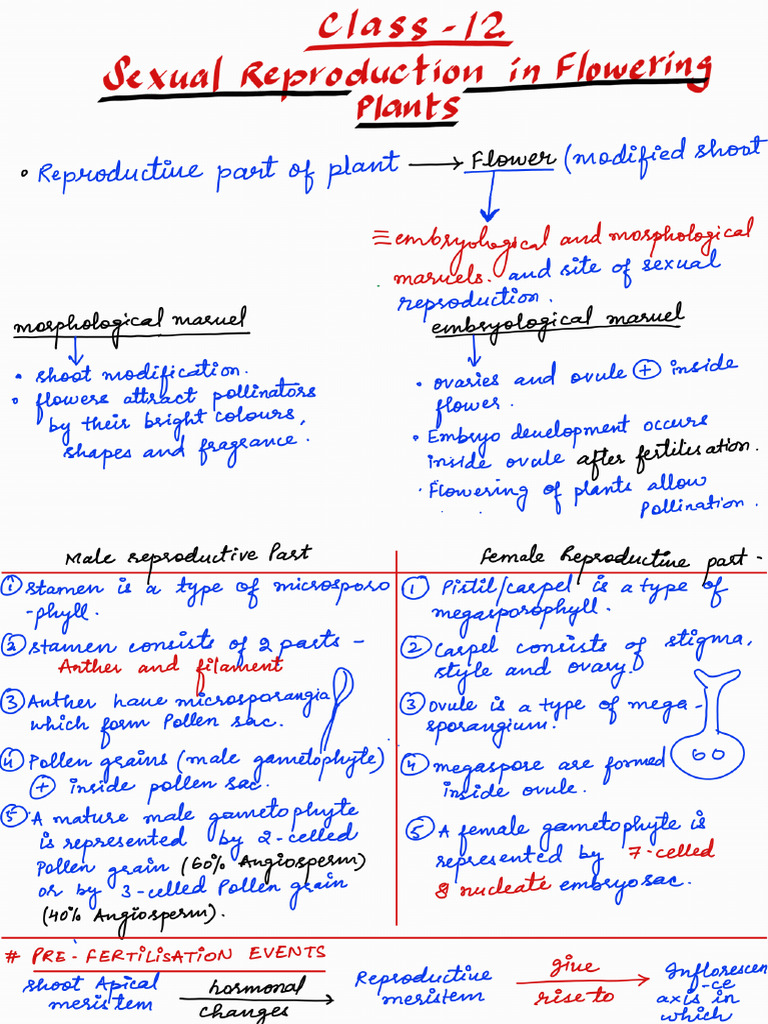 Class-12
Sexual Reproduction in Flowering
Plants
• Reproductive part of plant → Flower (modified shoot
≡ embryological and morphological
maruels. and site of sexual
reproduction.
morphological maruel
• shoot modification.
• flowers attract pollinators
by their bright colours,
shapes and fragrance.
embryological maruel
• ovaries and ovule ⊕ inside
flower.
• Embryo development occurs
inside ovule after fertilisation.
• Flowering of plants allow
Pollination.
Male reproductive Part
① stamen is a type of microsporo
-phyll.
② stamen consists of 2 parts -
Anther and filament
③ Anther have microsporangia
which form Pollen sac.
④ Pollen grains (male gametophyte)
⊕ inside pollen sac.
⑤ A mature male gametophyte
is represented by 2-celled
Pollen grain (60% Angiosperm)
or by 3-celled Pollen grain
(40% Angiosperm).
Female Reproductive part -
① Pistil/carpel is a type of
megasporophyll.
② Carpel consists of stigma,
style and ovary.
③ ovule is a type of mega -
sporangium.
④ megaspore are formed
inside ovule.
⑤ A female gametophyte is
represented by 7-celled
8 nucleate embryosac.
# PRE-FERTILISATION EVENTS
Shoot Apical
meristem
hormonal
changes
→
Reproductive
meristem
give
rise to
→
Inflorescen
-ce
axis in
which